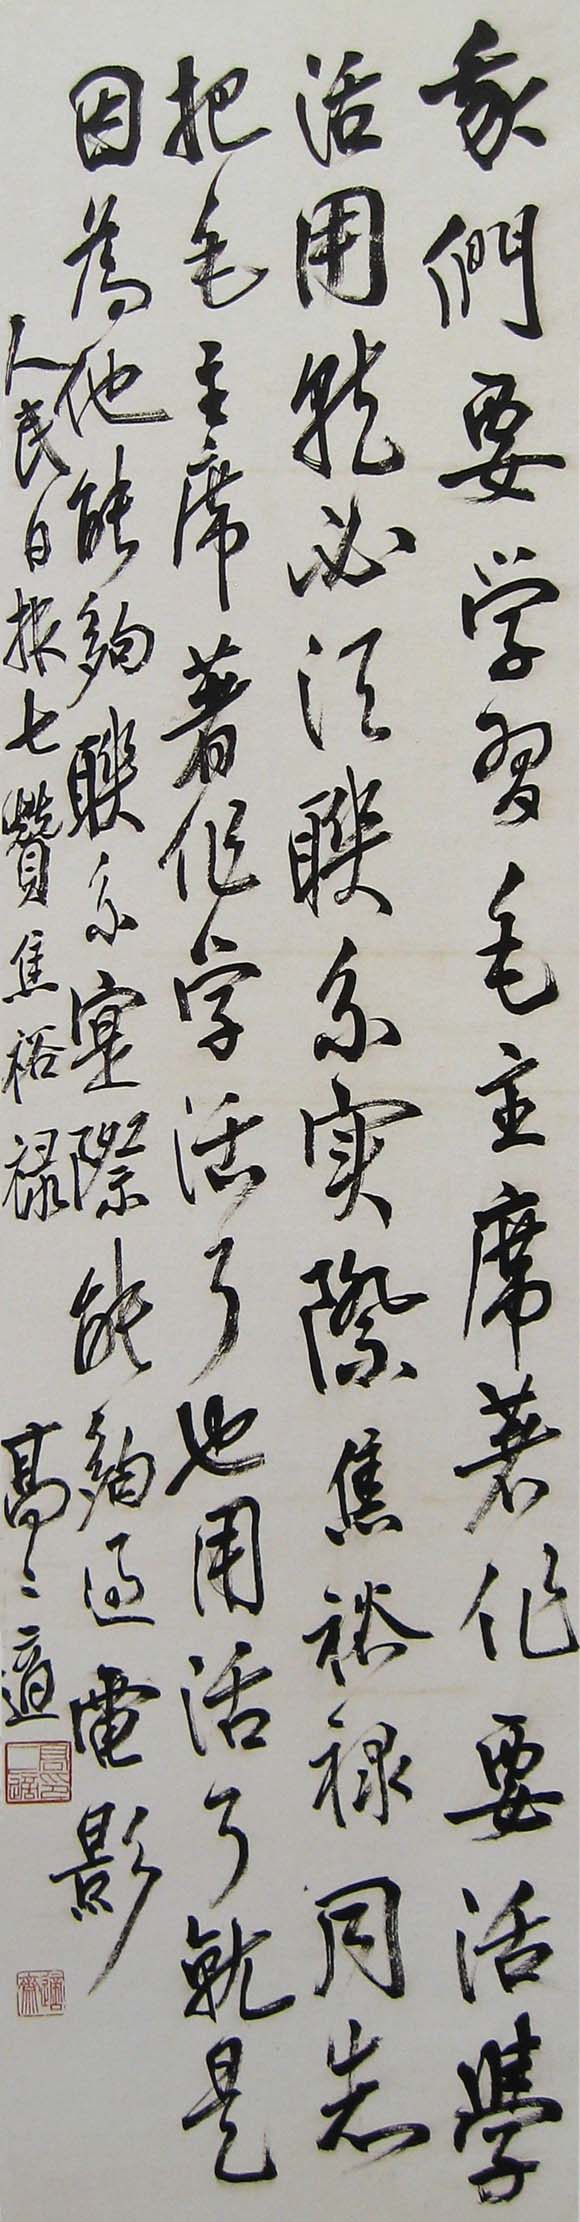 我們要学習毛主席著作要活學
活用就必須聯系实際焦裕禄同志
把毛主席著作学活了也用活了就是
因為他能夠聯系實際能夠過電影
人民日报七贊焦裕禄
高二適